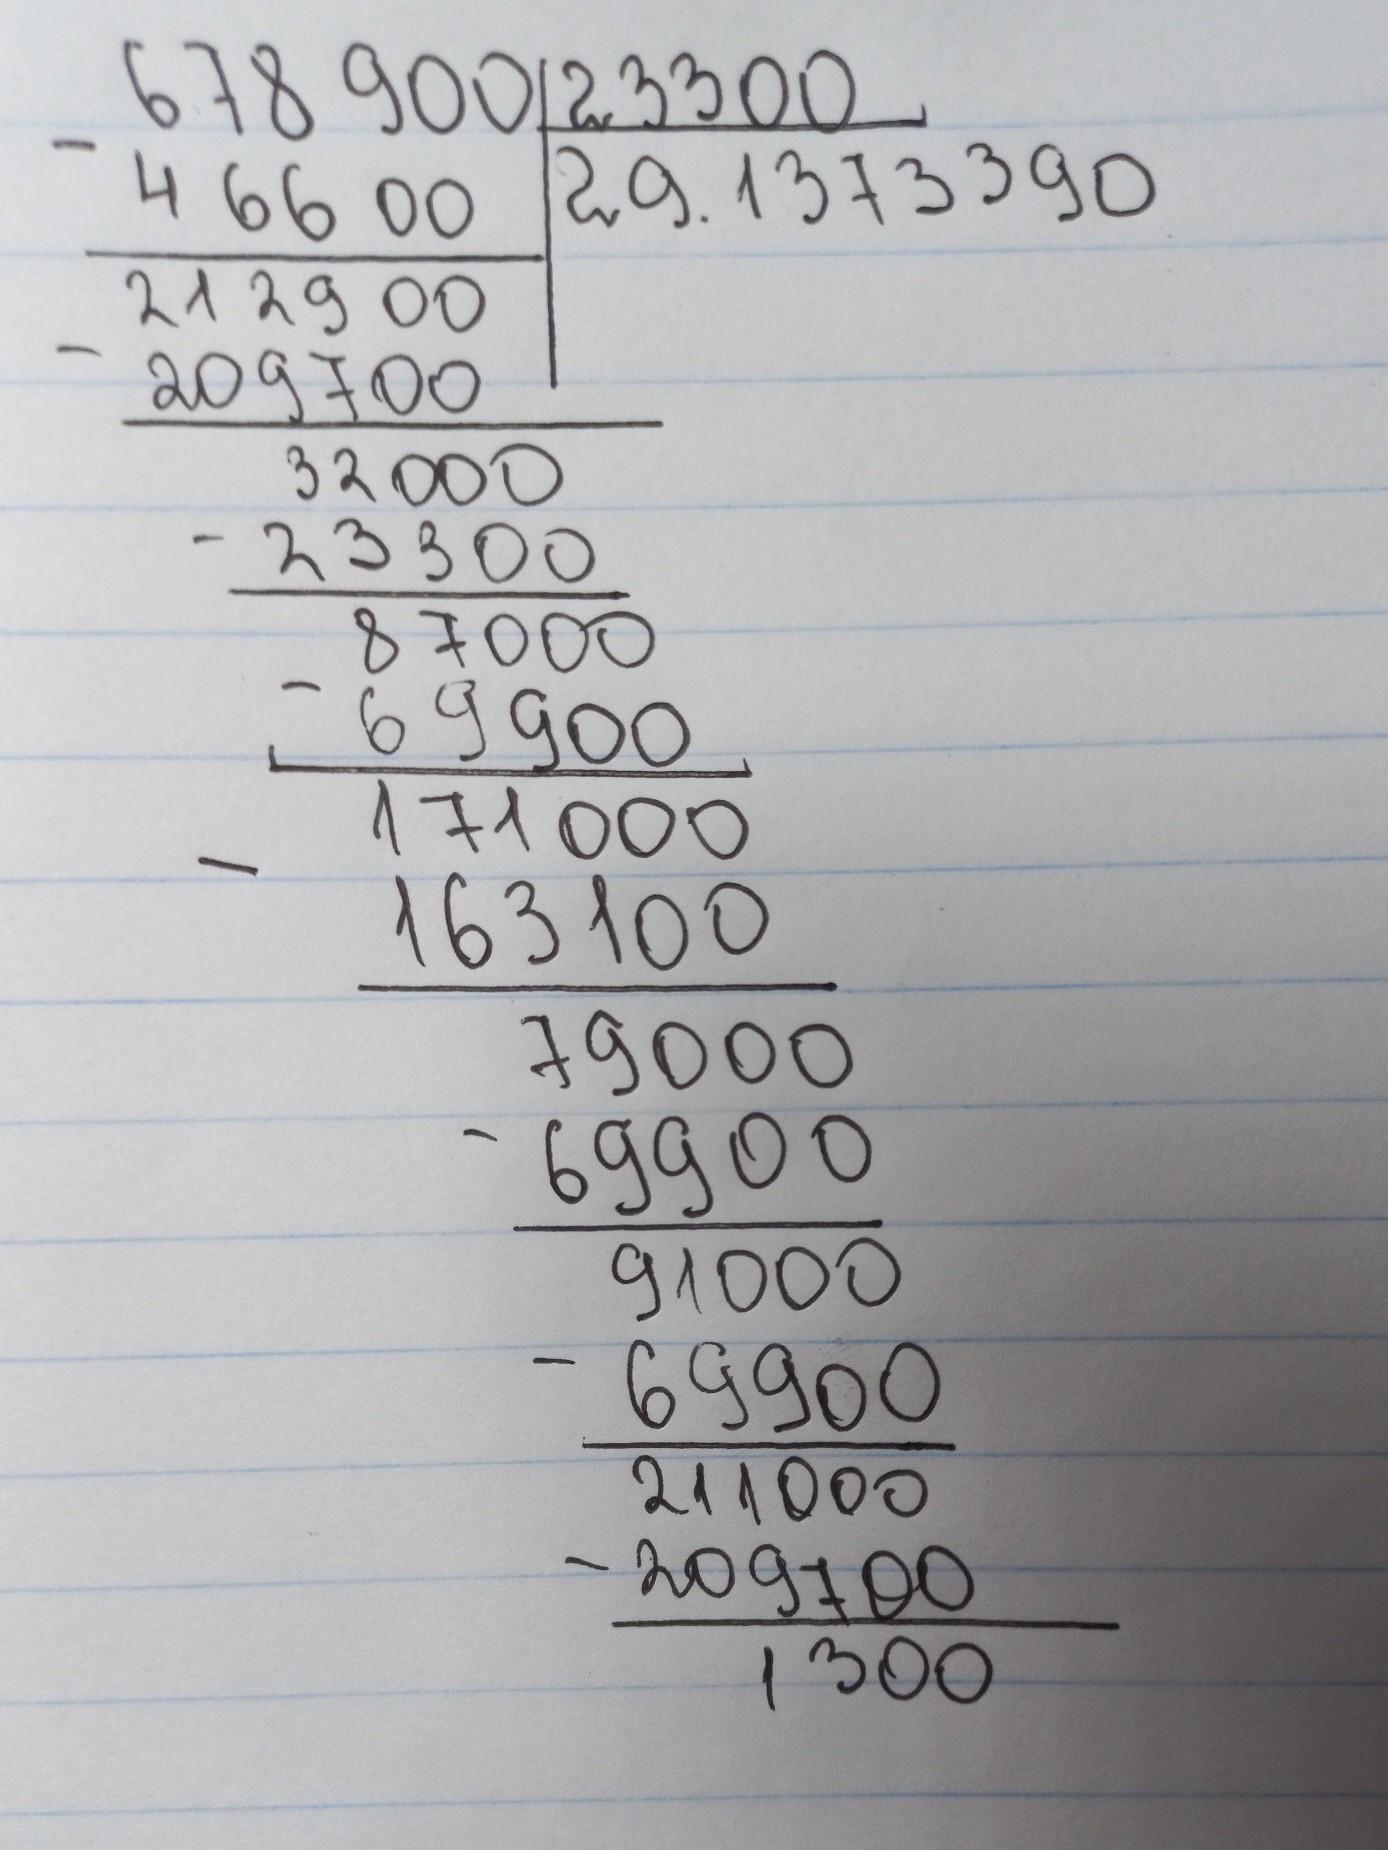 678900 23300
- 46600 29.1373390
212900
- 209700
32000
- 23300
87000
- 69900
171000
- 163100
79000
- 69900
91000
- 69900
211000
- 209700
1300